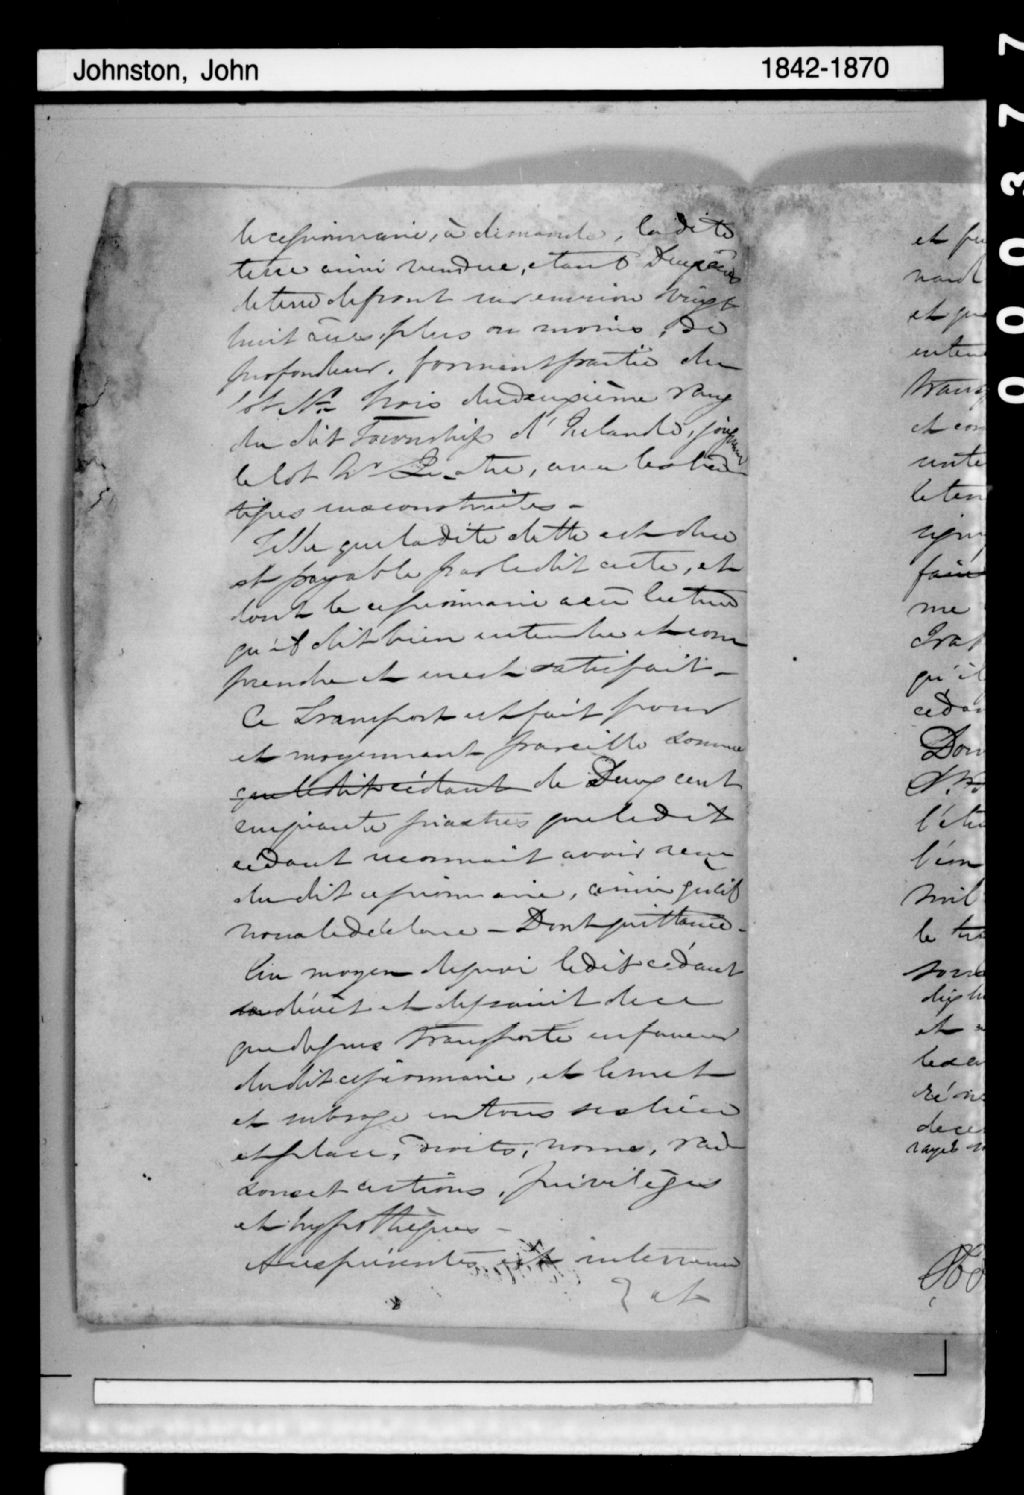 Johnston, John 1842-1870
0 0 0 3 7 7
le cessionnaire, à demande, la dite
terre ainsi vendue, étant Deux acres
de terre de front sur environ vingt
huit acres, plus ou moins, de
profondeur, formant partie du
lot No trois du deuxième rang
du dit Township d'Irelande, joignant
le lot No Quatre, avec les bâ
tisses sus construites -
Telle que la dite dette est due
et payable par le dit acte, et
dont le cessionnaire a eu lecture
qu'il dit bien entendre et com
prendre et en est satisfait -
Ce Transport est fait pour
et moyennant pareille somme
que le dit cédant de Deux cent
cinquante piastres que le dit
cédant reconnait avoir reçu
du dit cessionnaire, ainsi qu'il
nous le déclare - Dont quittance -
Au moyen de quoi le dit cédant
se dévêt et dessaisit de ce
que dessus transporté en faveur
du dit cessionnaire, et le met
et subroge en tous ses lieu
et place, droits, noms, rai
sons et actions, privilèges
et hypothèques -
Aux présentes est intervenu
et
et
nard
et
entend
trans
et con
le ter
faire
me
qu'il
cédan
Don
l'étu
l'an
mil
le
et
décè
rayés